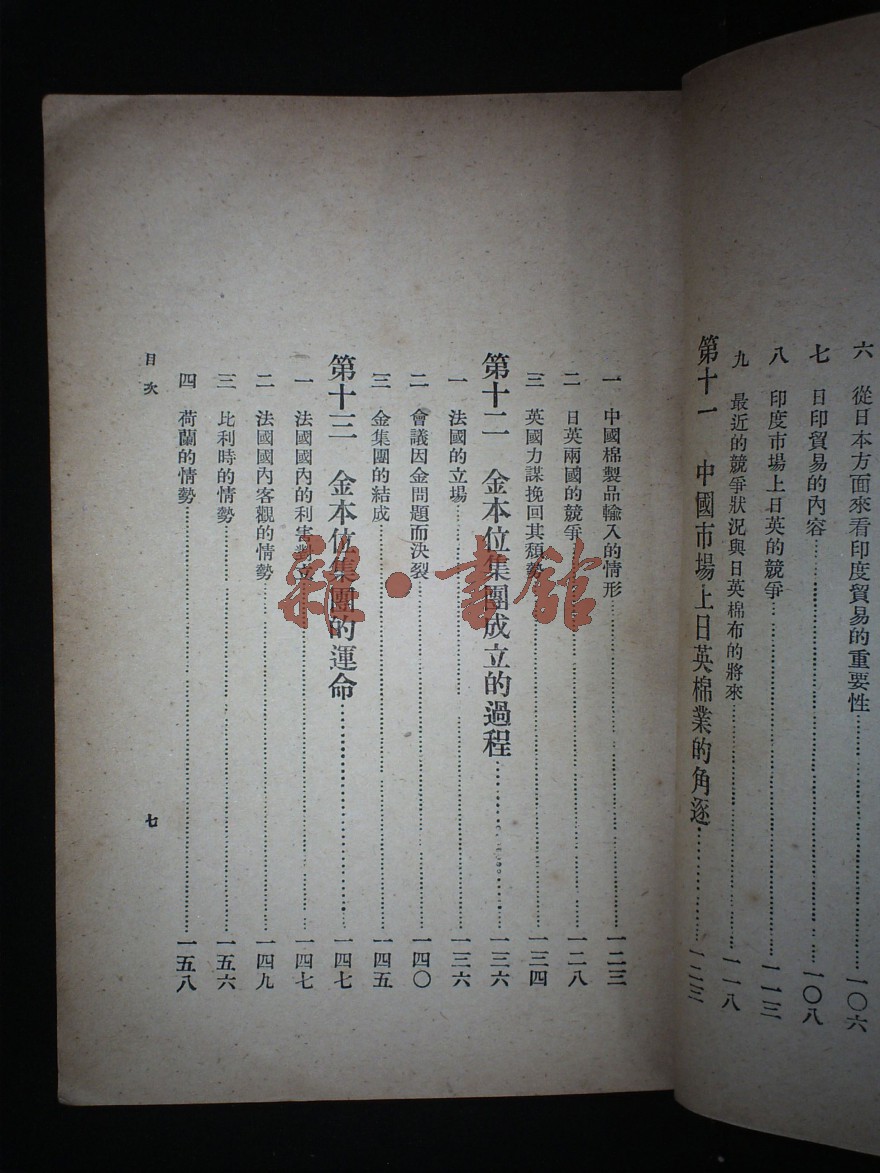 六　從日本方面來看印度貿易的重要性……一〇六
七　日印貿易的內容……一〇八
八　印度市場上日英的競爭……一一三
九　最近的競爭狀況與日英棉布的將來……一一八
第十一　中國市場上日英棉業的角逐……一二三
一　中國棉製品輸入的情形……一二三
二　日英兩國的競爭……一二八
三　英國力謀挽回其頹勢……一三四
第十二　金本位集團成立的過程……一三六
一　法國的立場……一三六
二　會議因金問題而決裂……一四〇
三　金集團的結成……一四五
第十三　金本位集團的運命……一四七
一　法國國內的利害對立……一四七
二　法國國內客觀的情勢……一四九
三　比利時的情勢……一五六
四　荷蘭的情勢……一五八
目次
七